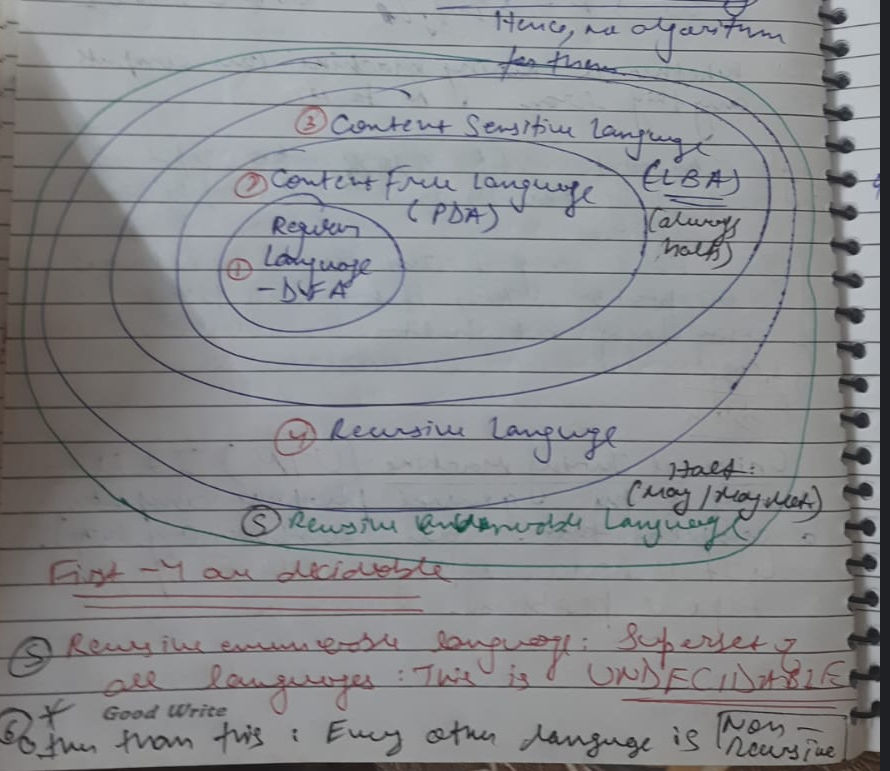 Hence, no algorithm
for them
③ Context Sensitive Language
(LBA)
(always
halts)
② Context Free Language
(PDA)
Regular
① Language
- DFA
④ Recursive Language
Halt:
(May / May Not)
⑤ Recursive enumerable Language
First - 4 are decidable
⑤ Recursive enumerable language: Superset of
all languages: This is UNDECIDABLE
Good Write
⑥ Other than this: Every other language is Non-
Recursive